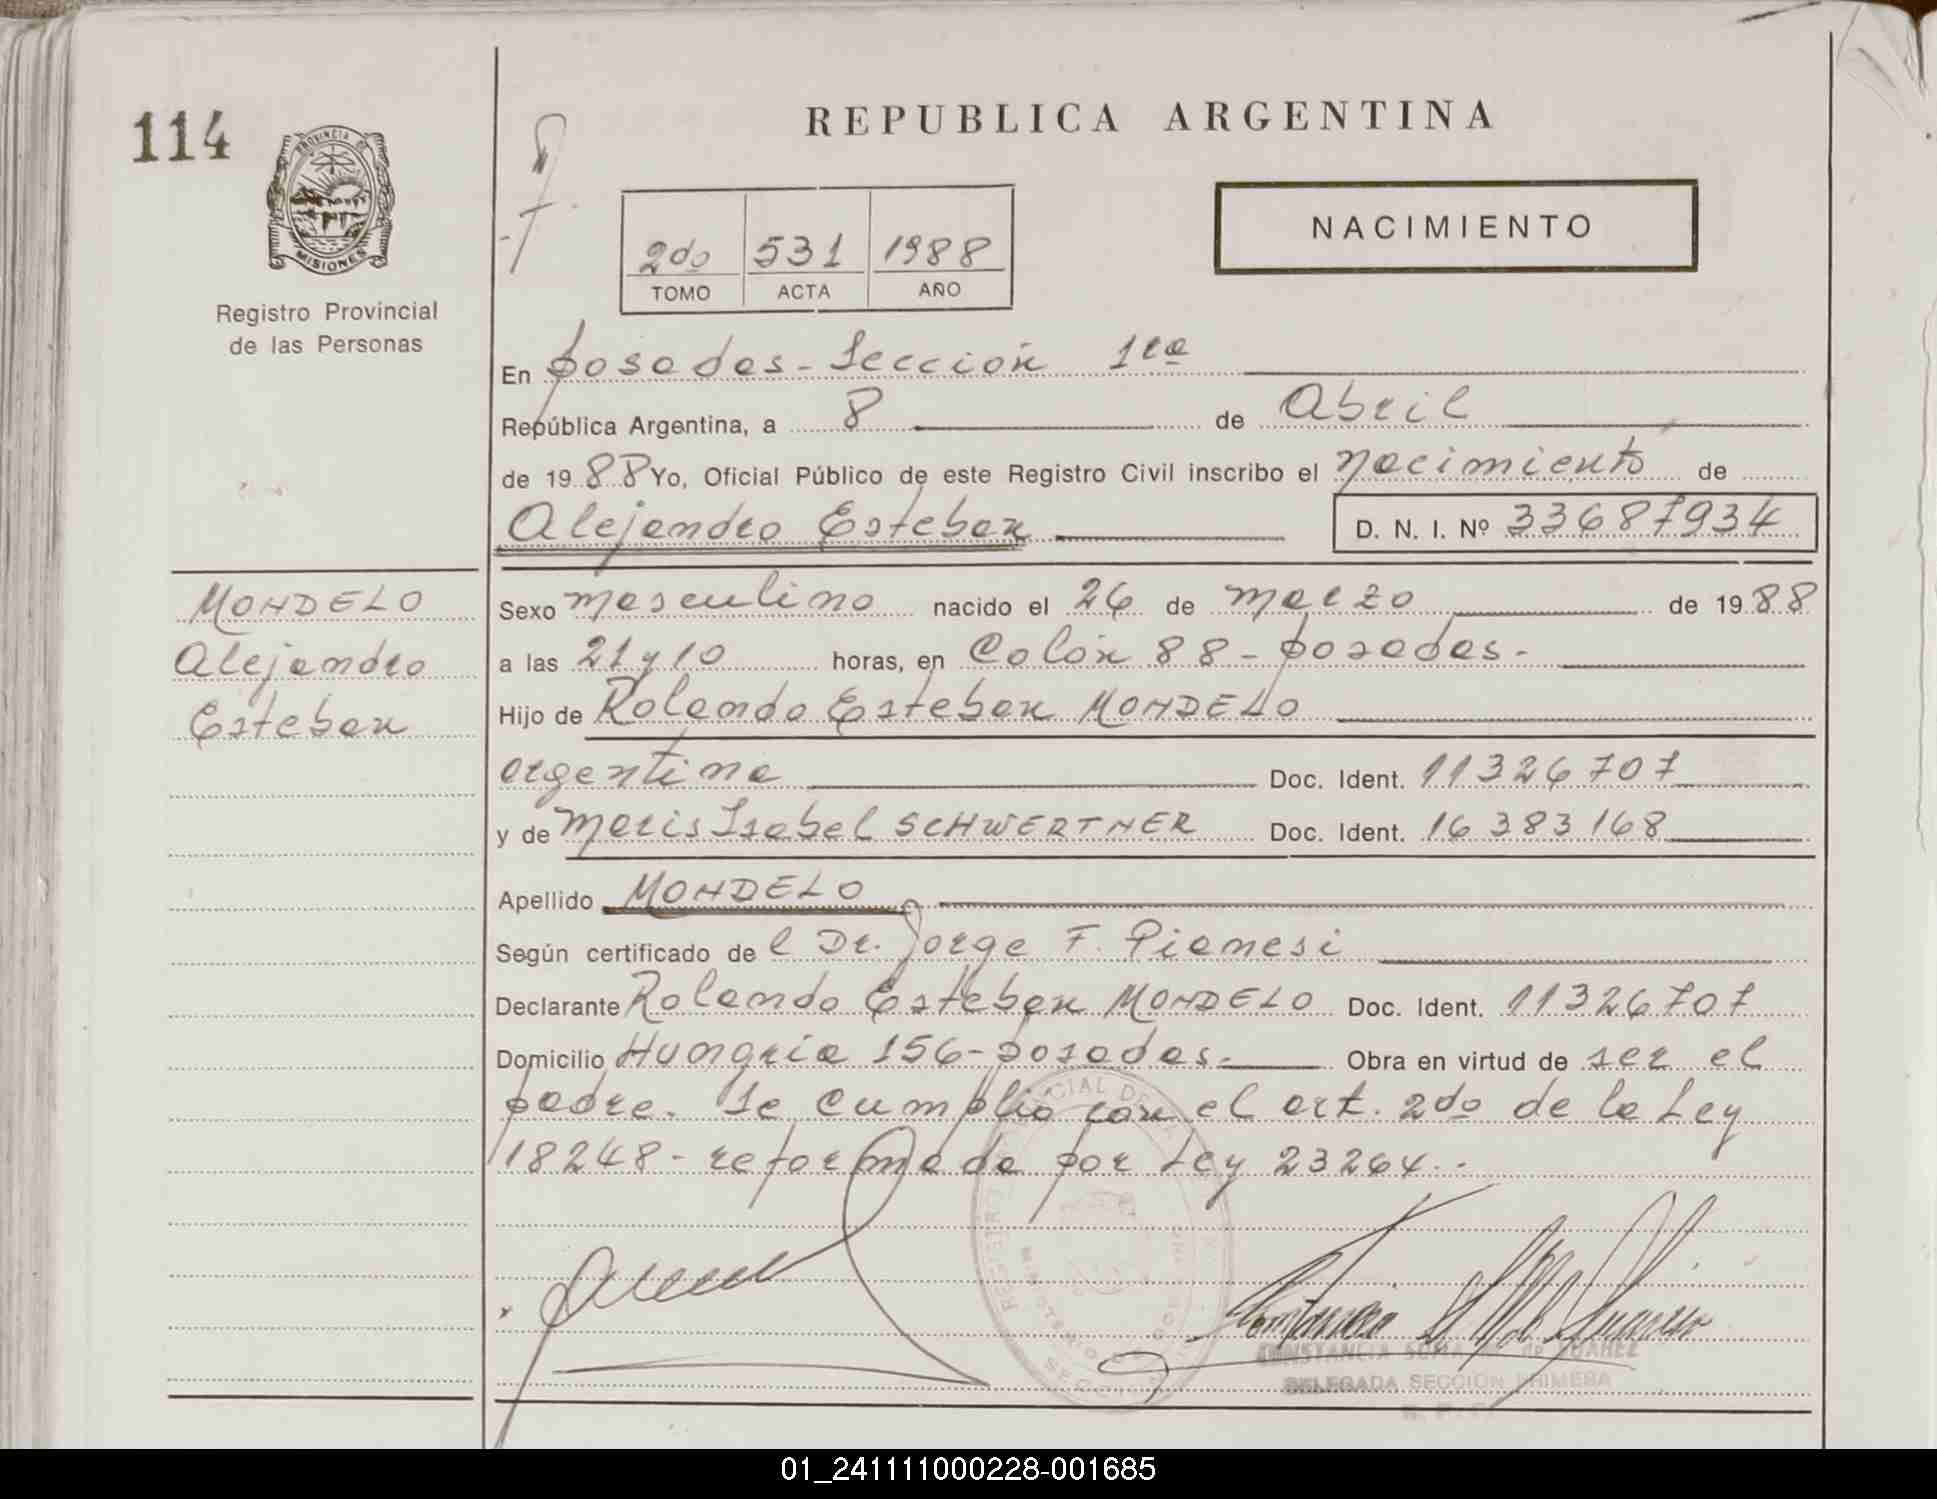 114
PROVINCIA DE
MISIONES
Registro Provincial
de las Personas
REPUBLICA ARGENTINA
2do 531 1988
TOMO ACTA AÑO
NACIMIENTO
En posadas - Sección 1ra
República Argentina, a 8 de Abril
de 1988 Yo, Oficial Público de este Registro Civil inscribo el nacimiento de
Alejandro Esteban D. N. I. Nº 33687934
MONDELO
Alejandro
Esteban
Sexo masculino nacido el 26 de marzo de 1988
a las 21 y 10 horas, en Colón 88 - posadas -
Hijo de Rolando Esteban MONDELO
argentina Doc. Ident. 11326707
y de Maris Isabel SCHWERTNER Doc. Ident. 16383168
Apellido MONDELO
Según certificado del Dr. Jorge F. Pianesi
Declarante Rolando Esteban MONDELO Doc. Ident. 11326707
Domicilio Hungria 156 - posadas - Obra en virtud de ser el
padre. Se cumplio con el art. 2do de la Ley
18248 - reformada por Ley 23264 . -
CONSTANCIA de SUAREZ
DELEGADA SECCIÓN PRIMERA
01_241111000228-001685